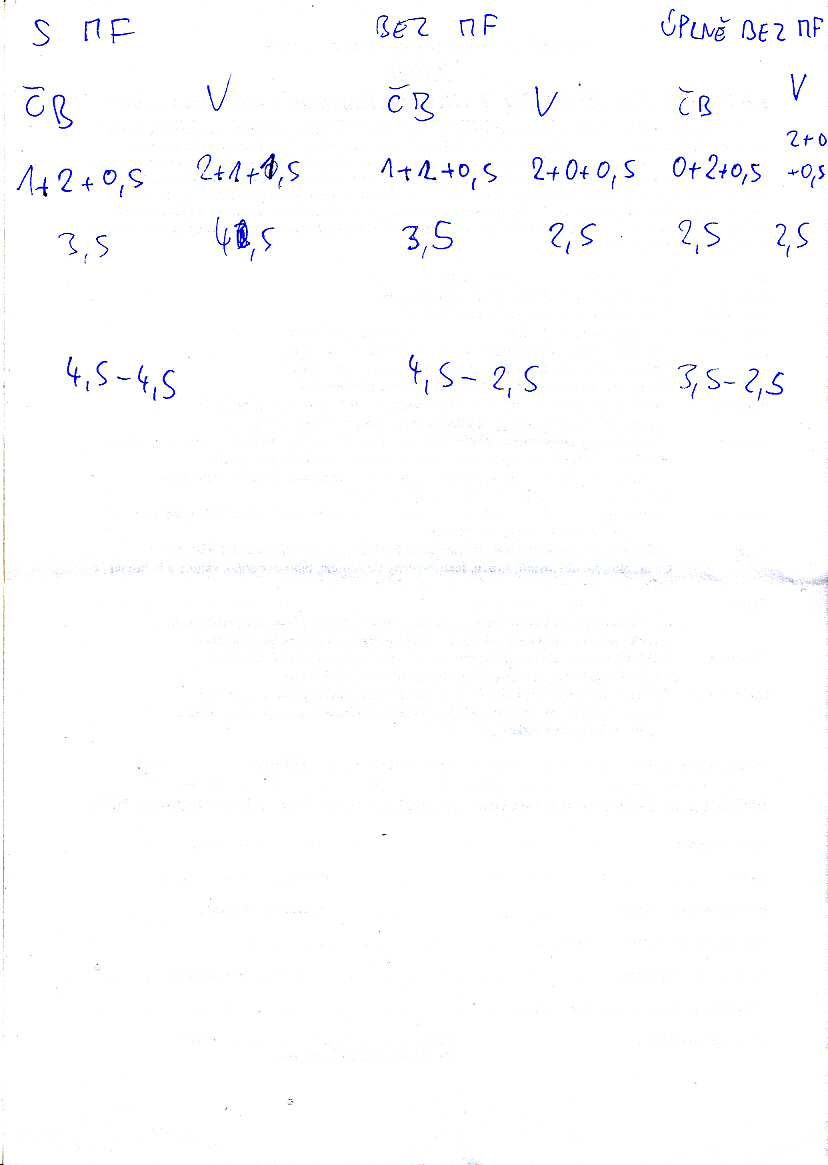 S ПF BEZ ПF ÚPLNĚ BEZ ПF
ČB V ČB V ČB V
1+2+0,5 2+1+1,5 1+2+0,5 2+0+0,5 0+2+0,5 2+0+0,5
3,5 4,5 3,5 2,5 2,5 2,5
4,5-4,5 4,5-2,5 3,5-2,5